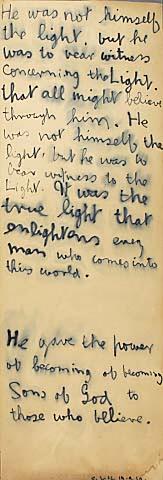 He was not himself
the light, but he
was to bear witness
concerning the Light,
that all might believe
through him. He
was not himself the
light, but he was to
bear witness to the
Light. It was the
true light that
enlightens every
man who comes into
this world.
He gave the power
of becoming of becoming
Sons of God to
those who believe.